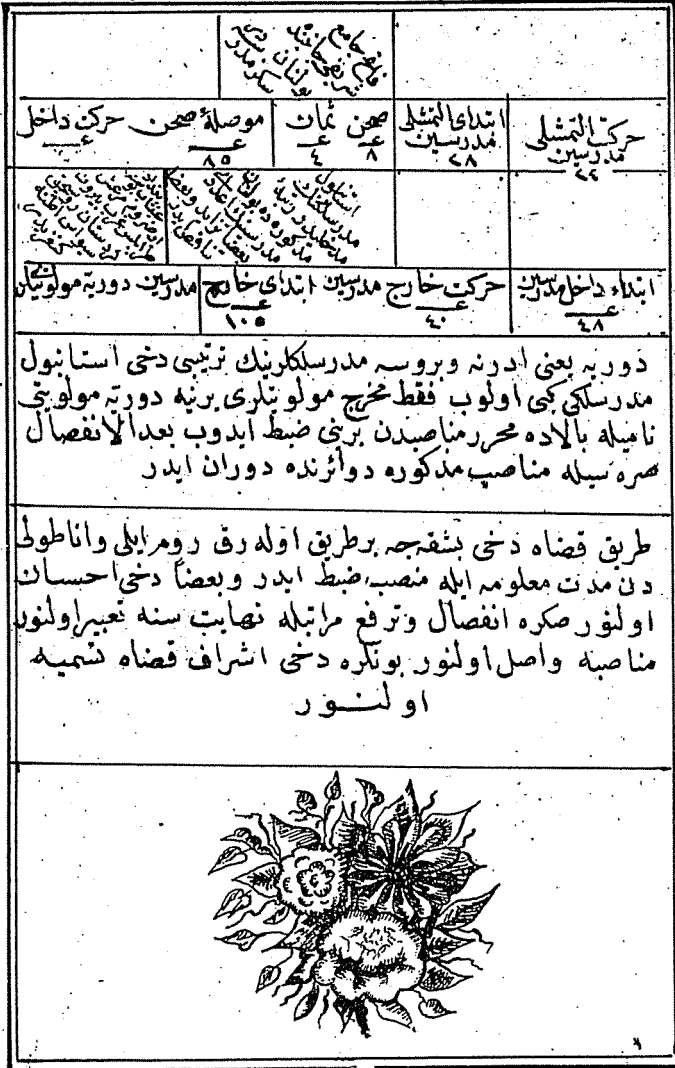 فاتح جامع
شريفى جانبنده
بولنان
سكز مدر
حركت التمشلى
مدرسين
٢٢
ابتداى التمشلى
مدرسين
٢٨
صحن ثمان
٨ ٤
موصلهٔ صحن
٨٥
حركت داخل
استانبول
مدرسلكلرينك
مذكوره ده
بعضاً تزايد وبعضاً
تناقص ايدر
ابتداء داخل مدرسين
٤٨
حركت خارج مدرسين
٤٠
ابتداى خارج مدرسين
١٠٥
دوريه مولويتلرى
دوريه يعنى ادرنه وبروسه مدرسلكلرينك ترتيبى دخى استانبول
مدرسلكى كبى اولوب فقط مخرج مولويتلرى يرينه دوريه مولويتى
ناميله بالاده محرر مناصبدن برينى ضبط ايدوب بعد الانفصال
صره سيله مناصب مذكوره دوائرنده دوران ايدر
طريق قضاه دخى بشقه جه برطريق اوله رق روم ايلى واناطولى
دن مدت معلومه ايله منصب ضبط ايدر وبعضاً دخى احسان
اولنور صكره انفصال وترفع مراتبله نهايت سته تعبير اولنور
مناصبه واصل اولنور بونلره دخى اشراف قضاه تسميه
اولنور